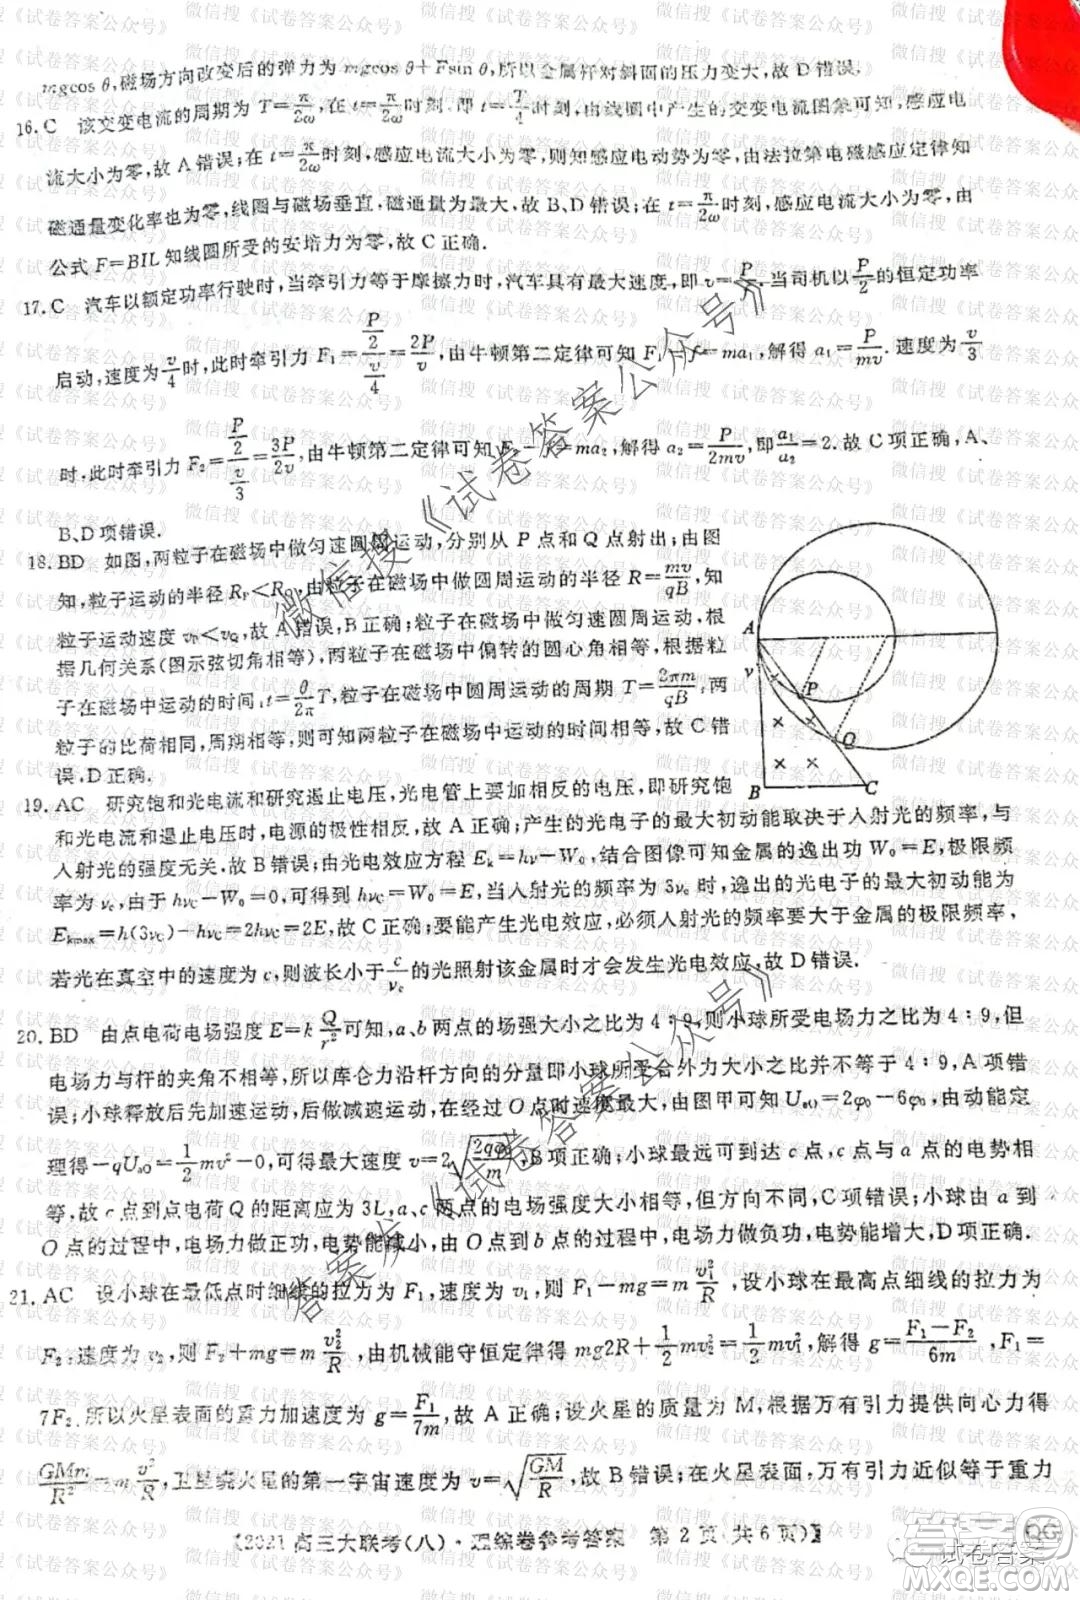 mgcos θ,磁场方向改变后的弹力为 mgcos θ+Fsin θ,所以金属杆对斜面的压力变大,故 D 错误.
16. C 该交变电流的周期为 T=π/2ω,在 t=π/2ω 时刻,即 t=T/4 时刻,由线圈中产生的交变电流图象可知,感应电
流大小为零,故 A 错误;在 t=π/2ω 时刻,感应电流大小为零,则知感应电动势为零,由法拉第电磁感应定律知
磁通量变化率也为零,线圈与磁场垂直,磁通量为最大,故 B、D 错误;在 t=π/2ω 时刻,感应电流大小为零,由
公式 F=BIL 知线圈所受的安培力为零,故 C 正确.
17. C 汽车以额定功率行驶时,当牵引力等于摩擦力时,汽车具有最大速度,即 v=P/f.当司机以 P/2 的恒定功率
启动,速度为 v/4 时,此时牵引力 F₁=(P/2)/(v/4)=2P/v,由牛顿第二定律可知 F₁-f=ma₁,解得 a₁=P/mv.速度为 v/3
时,此时牵引力 F₂=(P/2)/(v/3)=3P/2v,由牛顿第二定律可知 F₂-f=ma₂,解得 a₂=P/2mv,即 a₁/a₂=2.故 C 项正确,A、
B、D 项错误.
18. BD 如图,两粒子在磁场中做匀速圆周运动,分别从 P 点和 Q 点射出;由图
知,粒子运动的半径 R_P<R_Q,由粒子在磁场中做圆周运动的半径 R=mv/qB,知
粒子运动速度 v_P<v_Q,故 A 错误,B 正确;粒子在磁场中做匀速圆周运动,根
据几何关系(图示弦切角相等),两粒子在磁场中偏转的圆心角相等,根据粒
子在磁场中运动的时间,t=θ/2π T,粒子在磁场中圆周运动的周期 T=2πm/qB,两
粒子的比荷相同,周期相等,可知两粒子在磁场中运动的时间相等,故 C 错
误,D 正确.
A
v
P
Q
B
C
19. AC 研究饱和光电流和研究遏止电压,光电管上要加相反的电压,即研究饱
和光电流和遏止电压时,电源的极性相反,故 A 正确;产生的光电子的最大初动能取决于入射光的频率,与
入射光的强度无关,故 B 错误;由光电效应方程 Eₖ=hν-W₀,结合图像可知金属的逸出功 W₀=E,极限频
率为 ν_c,由于 hν_c-W₀=0,可得到 hν_c=W₀=E,当入射光的频率为 3ν_c 时,逸出的光电子的最大初动能为
E_kmax=h(3ν_C)-hν_C=2hν_C=2E,故 C 正确;要能产生光电效应,必须入射光的频率要大于金属的极限频率,
若光在真空中的速度为 c,则波长小于 c/ν_c 的光照射该金属时才会发生光电效应,故 D 错误.
20. BD 由点电荷电场强度 E=k Q/r² 可知,a、b 两点的场强大小之比为 4∶9,则小球所受电场力之比为 4∶9,但
电场力与杆的夹角不相等,所以库仑力沿杆方向的分量即小球所受合外力大小之比并不等于 4∶9,A 项错
误;小球释放后先加速运动,后做减速运动,在经过 O 点时速度最大,由图甲可知 U_aO=2φ₀-6φ₀,由动能定
理得-qU_aO=1/2 mv²-0,可得最大速度 v=2√(2qφ₀/m),B 项正确;小球最远可到达 c 点,c 点与 a 点的电势相
等,故 c 点到点电荷 Q 的距离应为 3L,a、c 两点的电场强度大小相等,但方向不同,C 项错误;小球由 a 到
O 点的过程中,电场力做正功,电势能减小,由 O 点到 b 点的过程中,电场力做负功,电势能增大,D项正确.
21. AC 设小球在最低点时细线的拉力为 F₁,速度为 v₁,则 F₁-mg=m v₁²/R,设小球在最高点细线的拉力为
F₂,速度为 v₂,则 F₂+mg=m v₂²/R,由机械能守恒定律得 mg2R+1/2 mv₂²=1/2 mv₁²,解得 g=(F₁-F₂)/6m,F₁=
7F₂,所以火星表面的重力加速度为 g=F₁/7m,故 A 正确;设火星的质量为 M,根据万有引力提供向心力得
GMm/R²=m v²/R,卫星绕火星的第一宇宙速度为 v=√(GM/R),故 B 错误;在火星表面,万有引力近似等于重力
【2021 高三大联考(八)·理综卷参考答案 第 2 页(共 6 页)】
QG
微信搜《试卷答案公众号》
试卷答案
答案圈
MXQE.COM